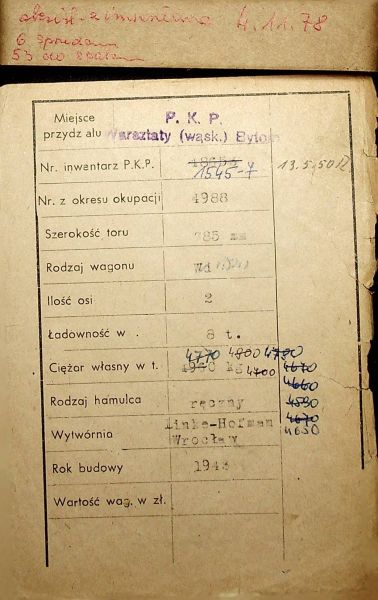 4.11.78
6 sprzedam
53 do
Miejsce
przydz alu
P. K. P.
Warsztaty (wąsk.) Bytom
Nr. inwentarz P.K.P.
1545-7
13.5.50 R
Nr. z okresu okupacji
4988
Szerokość toru
785 mm
Rodzaj wagonu
Wd
Ilość osi
2
Ładowność w .
8 t.
4770 4800 4790
Ciężar własny w t.
kg 4700 4670
4660
Rodzaj hamulca
ręczny
4590
4670
Wytwórnia
Linke-Hofman
Wrocław
4650
Rok budowy
1943
Wartość wag. w zł.